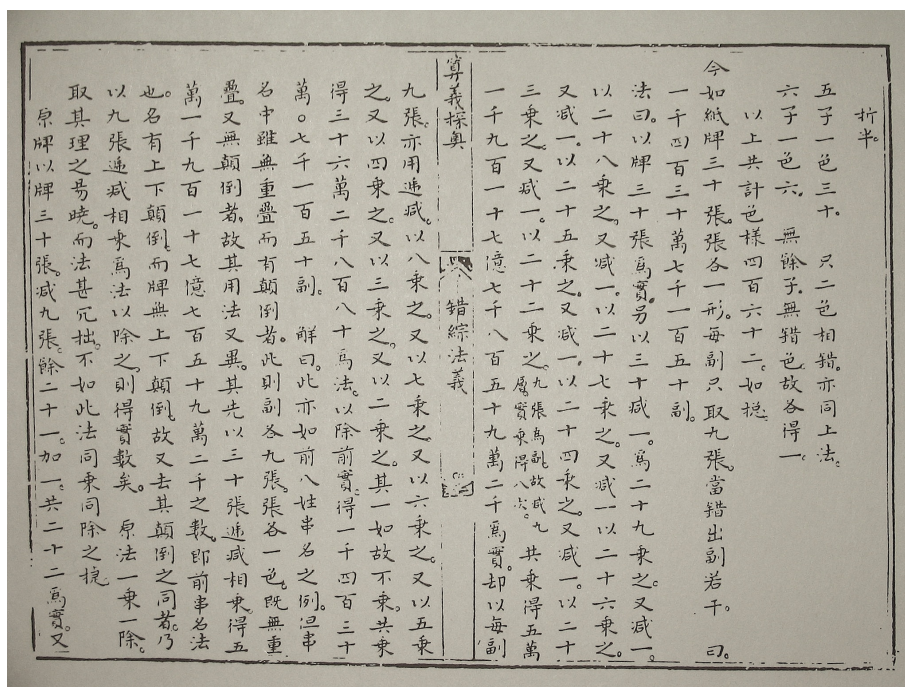 折半。
五子一色三十。　只二色相錯。亦同上法。
六子一色六。　無餘子。無錯色。故各得一
以上共計色樣四百六十二。如搃
今如紙牌三十張。張各一形。每副只取九張。當錯出副若干。　曰。
一千四百三十萬七千一百五十副。
法曰。以牌三十張爲實。另以三十減一。爲二十九乘之。又減一。
以二十八乘之。又減一。以二十七乘之。又減一以二十六乘之。
又減一。以二十五乘之。又減一。以二十四乘之。又減一。以二十
三乘之。又減一。以二十二乘之。九張爲副。故減九層。實乘得八次。共乘得五萬
一千九百一十七億七千八百五十九萬二千爲實。却以每副
算義探奧　錯綜法義
九張。亦用遞減。以八乘之。又以七乘之。又以六乘之。又以五乘
之。又以四乘之。又以三乘之。又以二乘之。其一如故不乘。共乘
得三十六萬二千八百八十爲法。以除前實。得一千四百三十
萬〇七千一百五十副。　解曰。此亦如前八姓串名之例。但串
名中雖無重疊而有顛倒者。此則副各九張。張各一色。既無重
疊。又無顛倒者。故其用法又異。其先以三十張遞減相乘。得五
萬一千九百一十七億七百五十九萬二千之數。即前串名法
也。名有上下顛倒。而牌無上下顛倒。故又去其顛倒之同者。乃
以九張遞減相乘爲法以除之。則得實數矣。　原法一乘一除。
取其理之易曉。而法甚冗拙。不如此法同乘同除之搃
原牌以牌三十張。減九張。餘二十一。加一。共二十二爲實。又